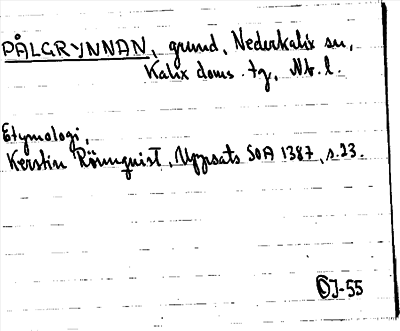 PÅLGRYNNAN, grund, Nederkalix sn,
Kalix doms. tg, Nb. l.
Etymologi,
Kerstin Rönnquist, Uppsats SOA 1387, s.23.
OJ-55